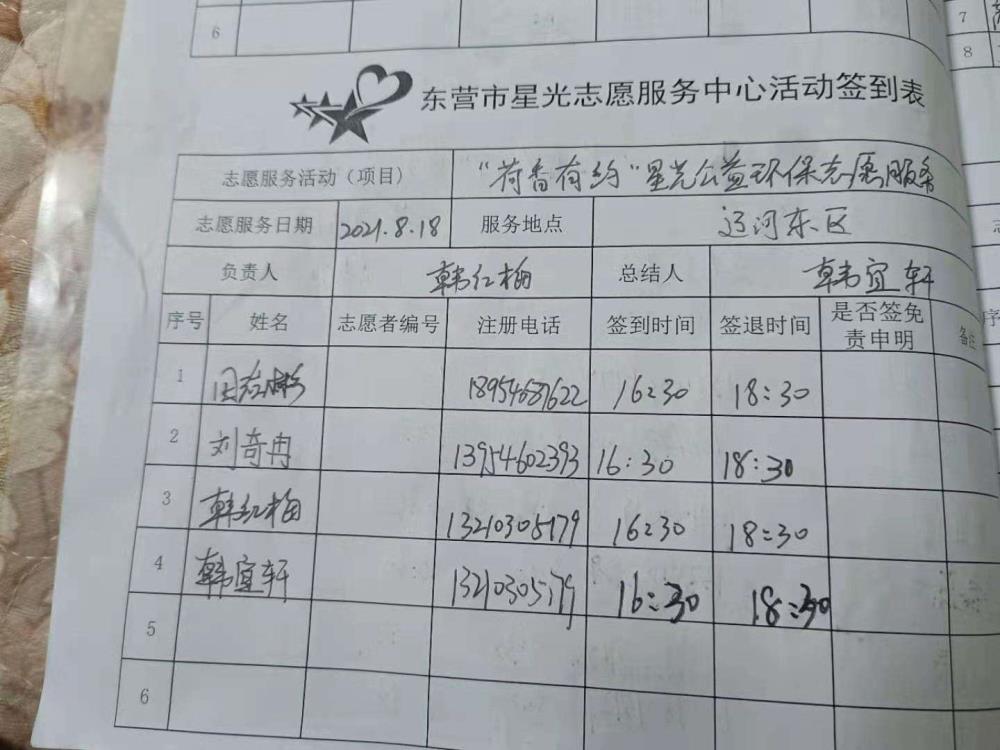 6
7
8
东营市星光志愿服务中心活动签到表
志愿服务活动（项目） “荷香有约”星光公益环保志愿服务
志愿服务日期 2021.8.18 服务地点 运河东区
负责人 韩红梅 总结人 韩宜轩
序号 姓名 志愿者编号 注册电话 签到时间 签退时间 是否签免责申明 备注
1 18954687622 16:30 18:30
2 刘奇冉 13954602393 16:30 18:30
3 韩红梅 13210305179 16:30 18:30
4 韩宜轩 13210305179 16:30 18:30
5
6